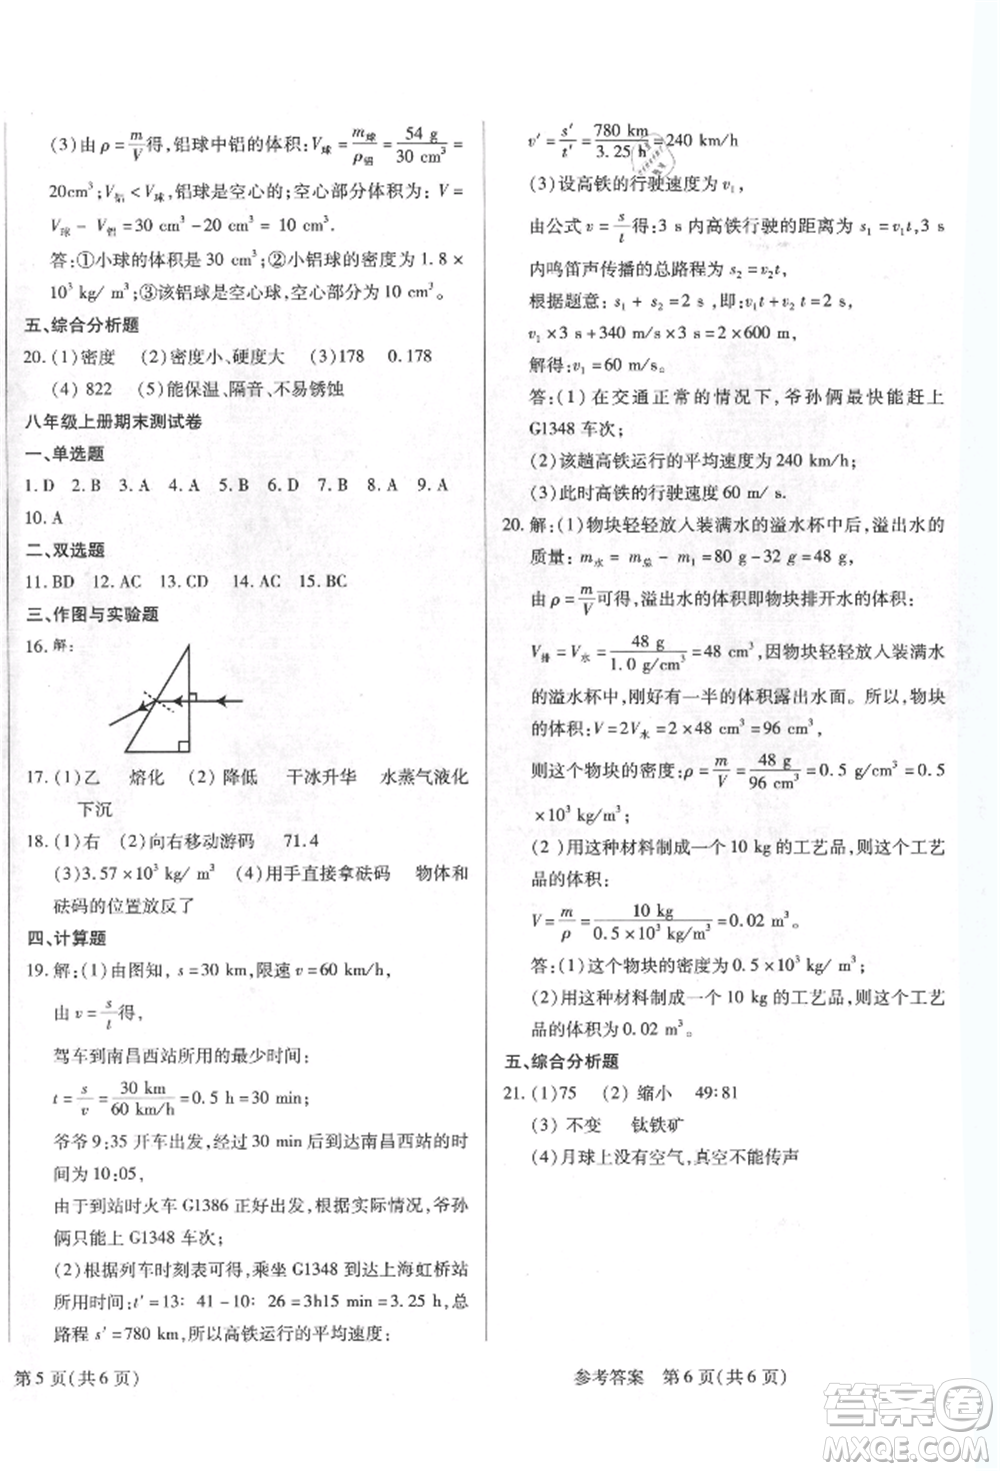 (3)由 ρ = m/V 得,铝球中铝的体积:V球 = m球/ρ铝 = 54 g/30 cm³ =
20cm³,V铝 < V球,铝球是空心的;空心部分体积为:V =
V球 - V铝 = 30 cm³ - 20 cm³ = 10 cm³。
答:①小球的体积是 30 cm³;②小铝球的密度为 1.8 ×
10³ kg/m³;③该铝球是空心球,空心部分体积为 10 cm³。
五、综合分析题
20.(1)密度 (2)密度小、硬度大 (3)178 0.178
(4) 822 (5)能保温、隔音、不易锈蚀
八年级上册期末测试卷
一、单选题
1.D 2.B 3.A 4.C 5.B 6.D 7.C 8.A 9.A
10.A
二、双选题
11.BD 12.AC 13.CD 14.AC 15.BC
三、作图与实验题
16.解:
17.(1)乙 熔化 (2)降低 干冰升华 水蒸气液化
下沉
18.(1)右 (2)向右移动游码 71.4
(3)3.57 × 10³ kg/m³ (4)用手直接拿砝码 物体和
砝码的位置放反了
四、计算题
19.解:(1)由图知, s = 30 km,限速 v = 60 km/h,
由 v = s/t 得,
驾车到南昌西站所用的最少时间:
t = s/v = 30 km/60 km/h = 0.5 h = 30 min,
爷爷 9:35 开车出发,经过 30 min 后到达南昌西站的时
间为 10:05,
由于到站时火车 G1386 正好出发,根据实际情况,爷孙
俩只能上 G1348 车次;
(2)根据列车时刻表可得,乘坐 G1348 到达上海虹桥站
所用时间:t′ = 13:41 - 10:26 = 3h15 min = 3.25 h,总
路程 s′ = 780 km,所以高铁运行的平均速度:
第 5 页(共 6 页)
v′ = s′/t′ = 780 km/3.25 h = 240 km/h
(3)设高铁的行驶速度为 v₁,
由公式 v = s/t 得:3 s 内高铁行驶的距离为 s₁ = v₁t,3 s
内鸣笛声传播的总路程为 s₂ = v₂t,
根据题意:s₁ + s₂ = 2 s,即:v₁t + v₂t = 2 s,
v₁ × 3 s + 340 m/s × 3 s = 2 × 600 m,
解得:v₁ = 60 m/s。
答:(1)在交通正常的情况下,爷孙俩最快能赶上
G1348 车次;
(2)该趟高铁运行的平均速度为 240 km/h;
(3)此时高铁的行驶速度为 60 m/s.
20.解:(1)物块轻轻放入装满水的溢水杯中后,溢出水的
质量:m水 = m总 - m₁ = 80 g - 32 g = 48 g,
由 ρ = m/V 可得,溢出水的体积即物块排开水的体积:
V排 = V水 = 48 g/1.0 g/cm³ = 48 cm³,因物块轻轻放入装满水
的溢水杯中,刚好有一半的体积露出水面。所以,物块
的体积:V = 2V水 = 2 × 48 cm³ = 96 cm³,
则这个物块的密度:ρ = m/V = 48 g/96 cm³ = 0.5 g/cm³ = 0.5
×10³ kg/m³;
(2)用这种材料制成一个 10 kg 的工艺品,这个工艺
品的体积:
V = m/ρ = 10 kg/0.5 × 10³ kg/m³ = 0.02 m³。
答:(1)这个物块的密度为 0.5 × 10³ kg/m³;
(2)用这种材料制成一个 10 kg 的工艺品,这个工艺
品的体积为 0.02 m³。
五、综合分析题
21.(1)75 (2)缩小 49:81
(3)不变 钛铁矿
(4)月球上没有空气,真空不能传声
参考答案 第 6 页(共 6 页)
答案卷
MXQE.COM